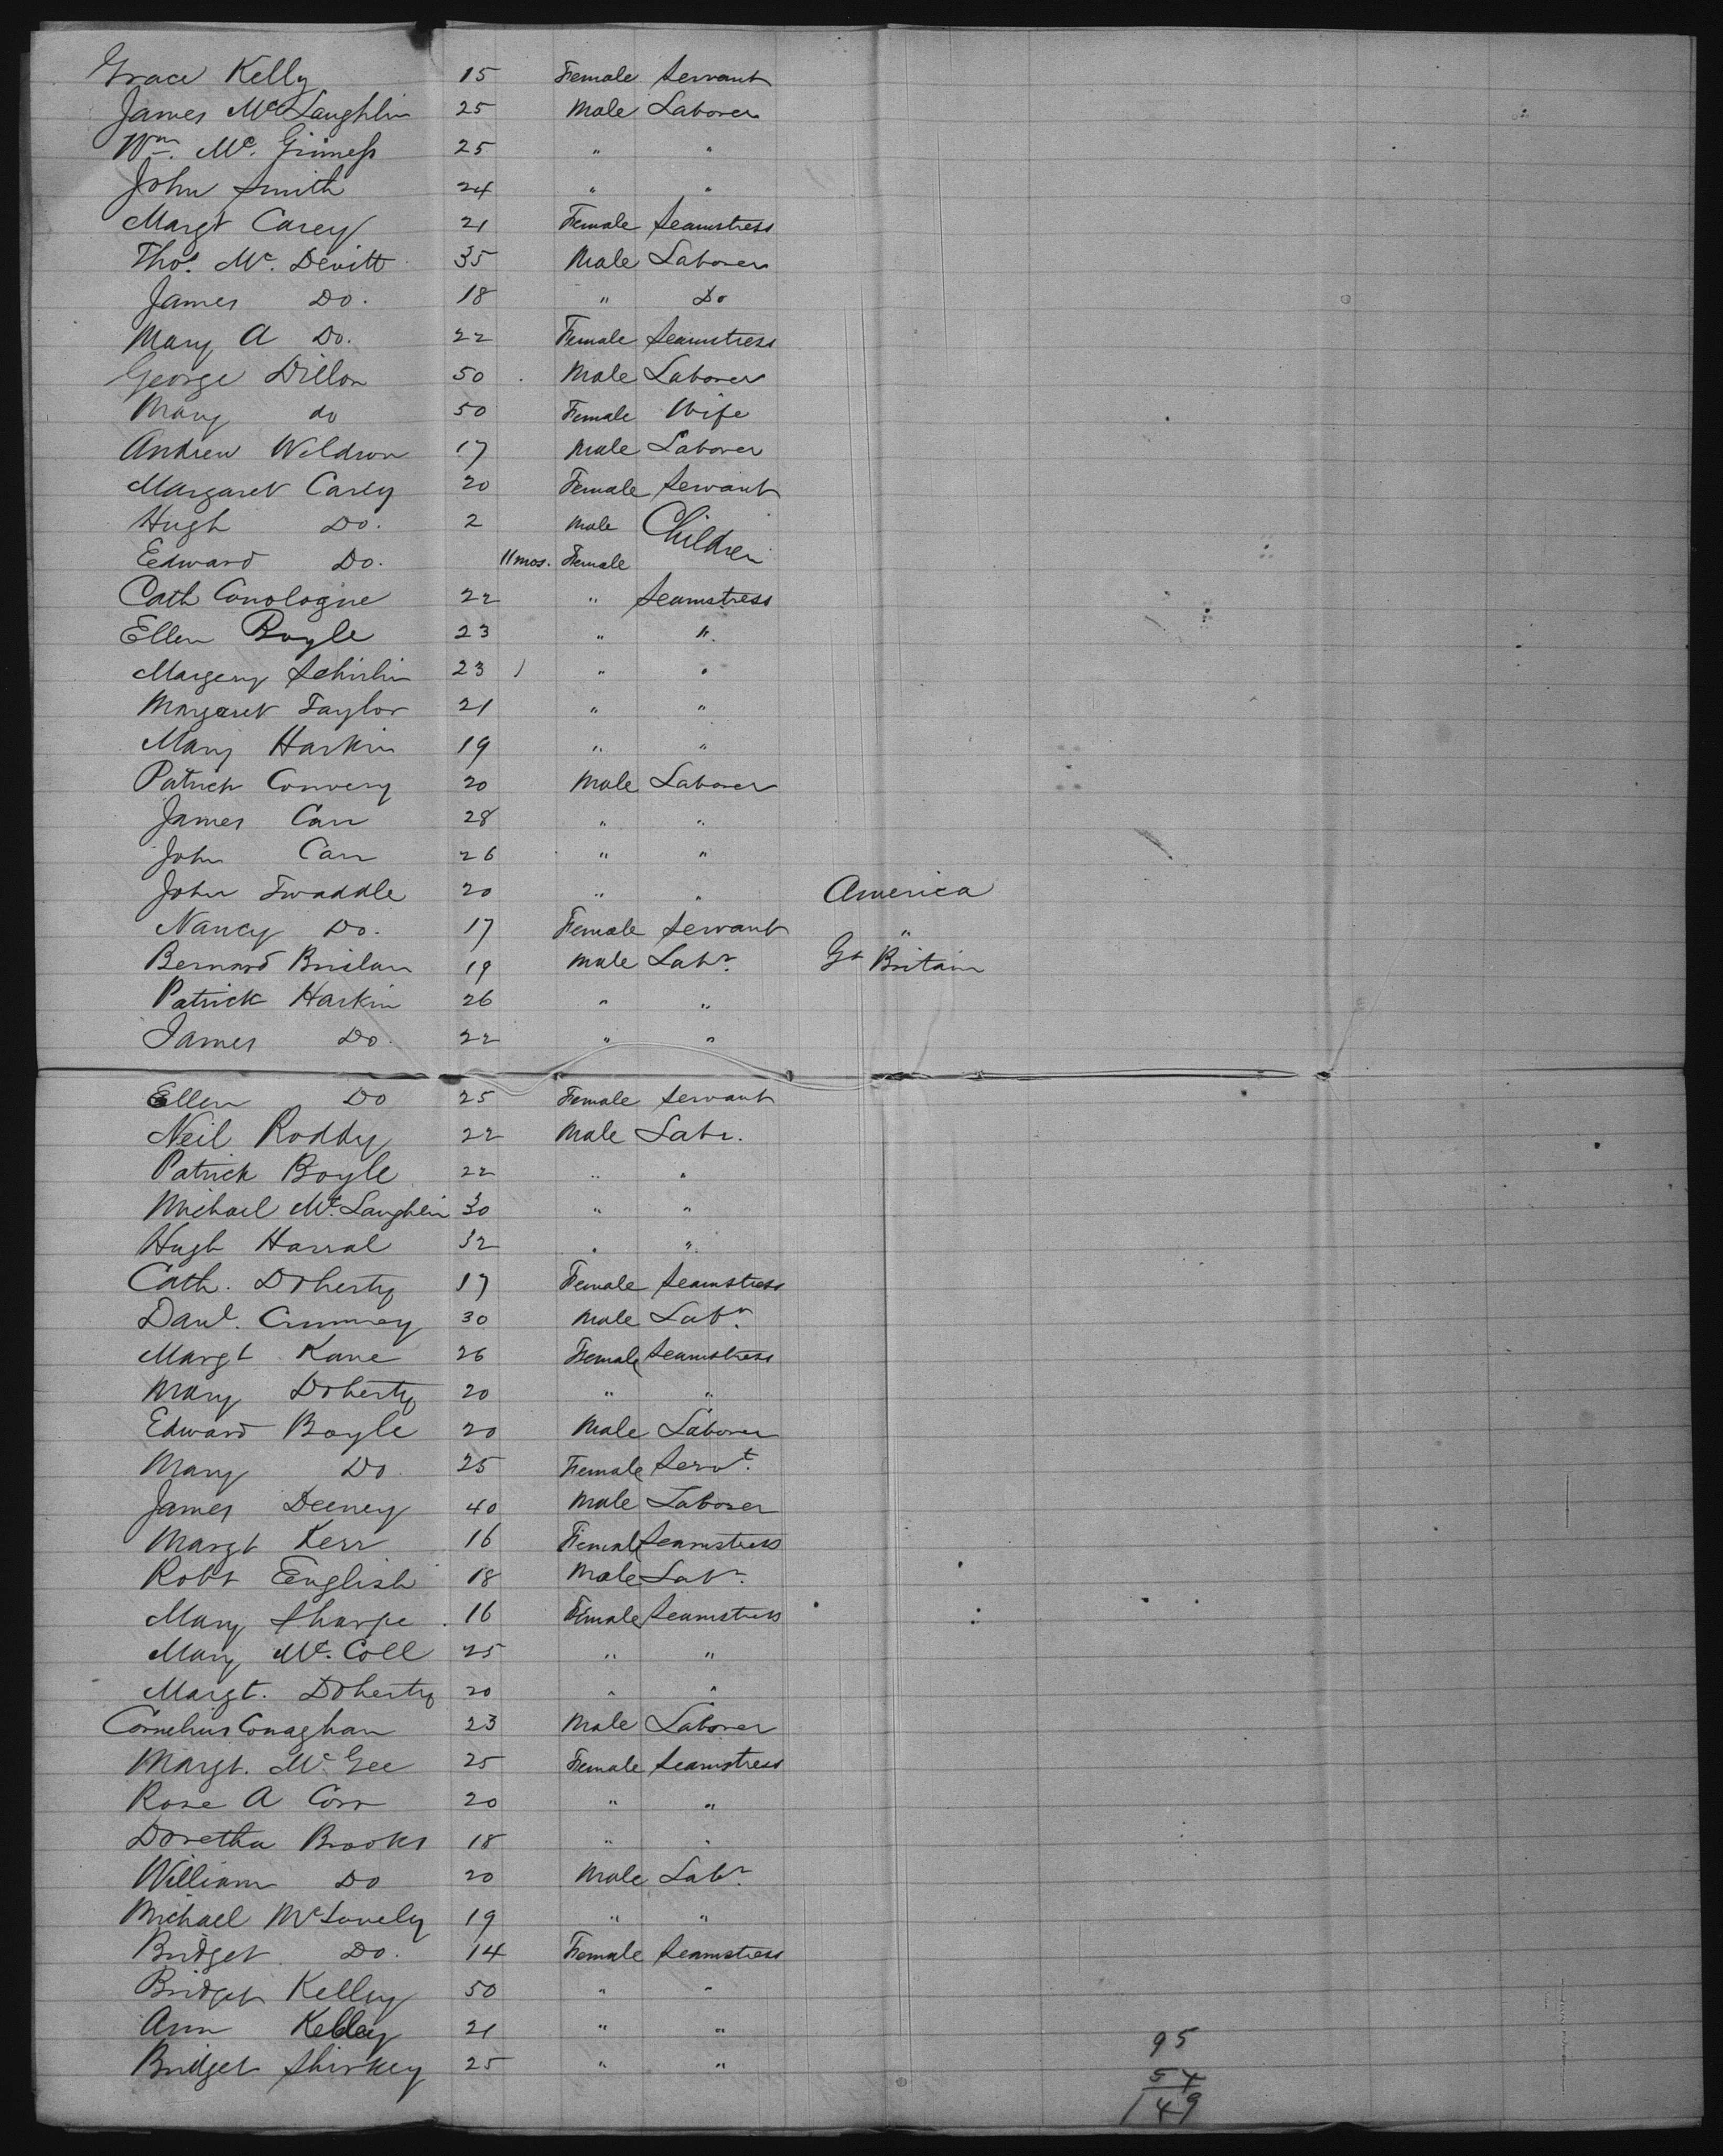 Grace Kelly 15 Female Servant
James McLaughlin 25 Male Laborer
Wm. Mc. Ginness 25 " "
John Smith 24 " "
Margt Carey 21 Female Seamstress
Thos. Mc. Devitt 35 Male Laborer
James Do. 18 " Do
Mary A Do. 22 Female Seamstress
George Dillon 50 Male Laborer
Mary do 50 Female Wife
Andrew Weldron 17 Male Laborer
Margaret Carey 20 Female Servant
Hugh Do. 2 Male Children
Edward Do. 11 mos. Female
Cath Conologue 22 " Seamstress
Ellen Boyle 23 " "
Margery 23 " "
Margaret Taylor 21 " "
Mary Harkin 19 " "
Patrick Convery 20 Male Laborer
James Carr 28 " "
John Carr 26 " "
John Twaddle 20 " " America
Nancy Do. 17 Female Servant "
Bernard Brislan 19 Male Labr. Gt Britain
Patrick Harkin 26 " "
James Do. 22 " "
Ellen Do 25 Female Servant
Neil Roddy 22 Male Labr.
Patrick Boyle 22 " "
Michael Mc. Laughlin 30 " "
Hugh Harral 32 " "
Cath. Doherty 17 Female Seamstress
Danl. 30 Male Labr.
Margt Kane 26 Female Seamstress
Mary Doherty 20 " "
Edward Boyle 20 Male Laborer
Mary Do. 25 Female Servt.
James Deeney 40 Male Laborer
Margt Kerr 16 Female Seamstress
Robt English 18 Male Labr.
Mary Sharpe 16 Female Seamstress
Mary Mc. Coll 25 " "
Margt. Doherty 20 " "
Cornelius Conaghan 23 Male Laborer
Margt. Mc Gee 25 Female Seamstress
Rose A Corr 20 " "
Doretha Brooks 18 " "
William Do 20 Male Labr.
Michael 19 " "
Bridget Do. 14 Female Seamstress
Bridget Kelly 50 " "
Ann Kelley 21 " "
Bridget Shirkey 25 " "
95
54
149